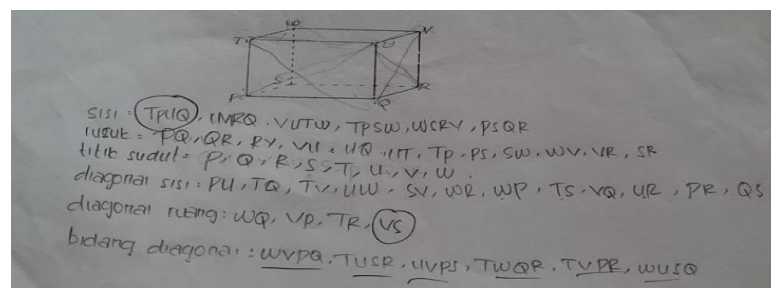 W V
T U
S R
P Q
sisi : TPUQ, UVRQ, VUTW, TPSW, WSRV, PSQR
rusuk = PQ, QR, RV, VU, UQ, UT, TP, PS, SW, WV, VR, SR
titik sudut = P, Q, R, S, T, U, V, W.
diagonal sisi : PU, TQ, TV, UW, SV, WR, WP, TS, VQ, UR, PR, QS
diagonal ruang : WQ, VP, TR, VS
bidang diagonal : WVPQ, TUSR, UVPS, TWQR, TVPR, WUSQ